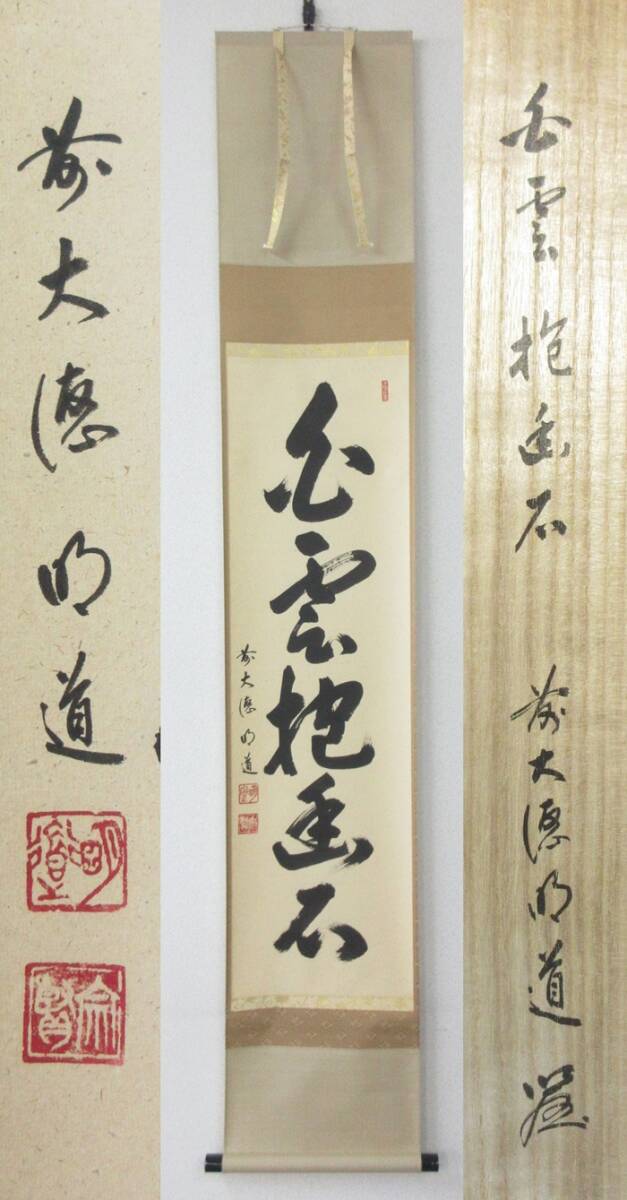 前大徳明道
明道
白雲抱幽石
前大徳明道
白雲抱幽石
前大徳明道